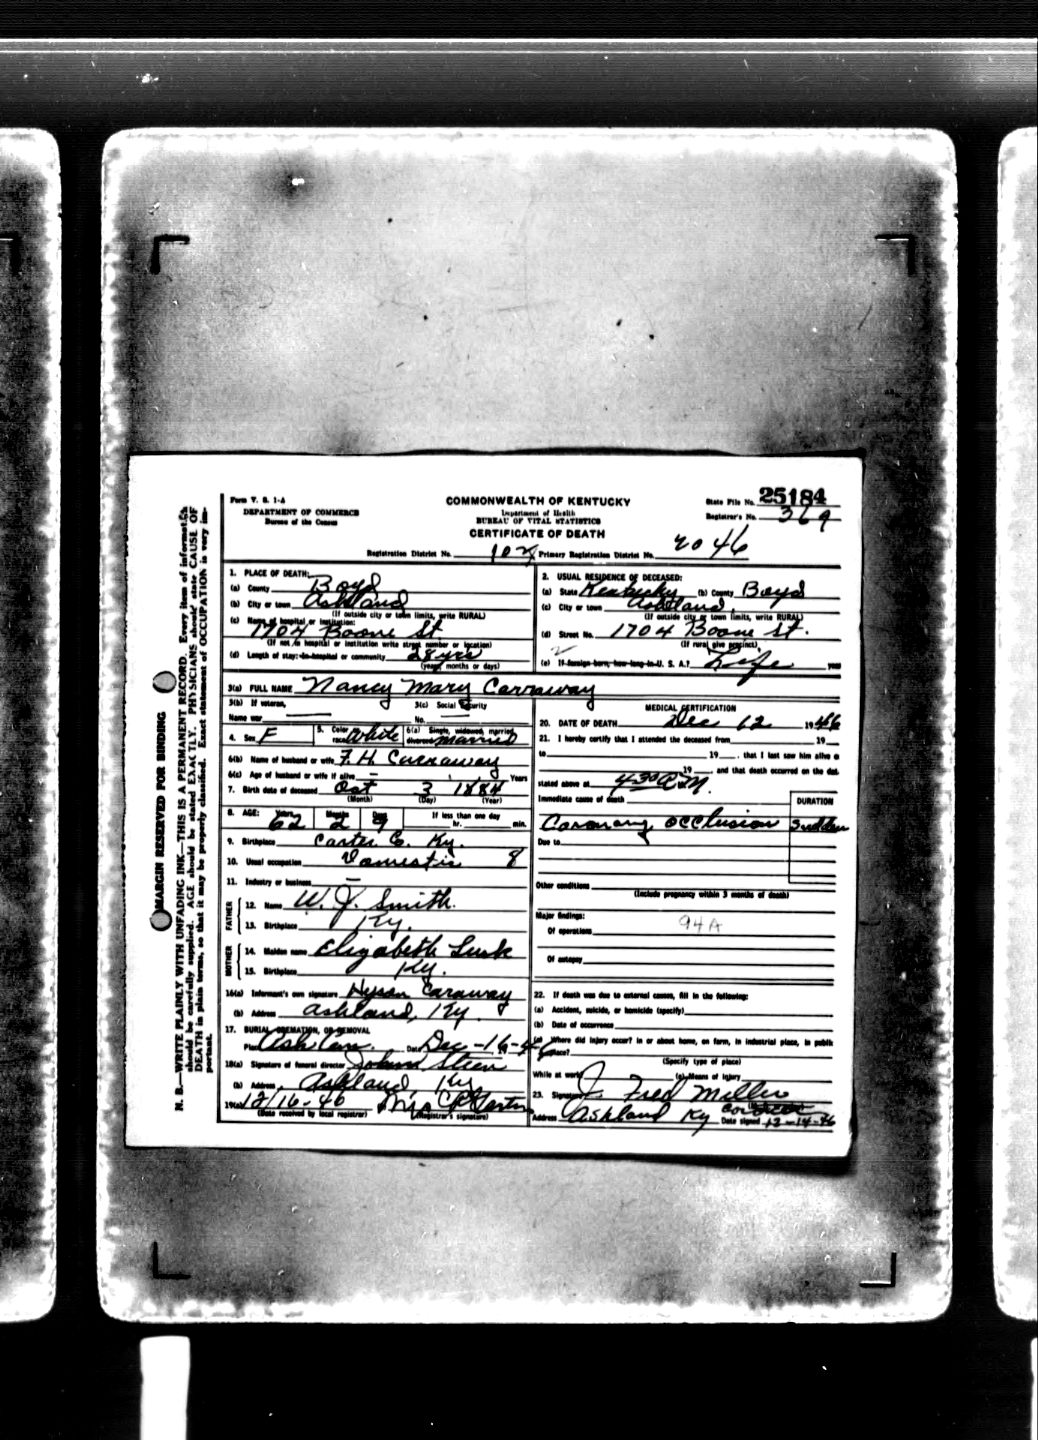 Form V. S. 1-A
DEPARTMENT OF COMMERCE
Bureau of the Census
COMMONWEALTH OF KENTUCKY
Department of Health
BUREAU OF VITAL STATISTICS
CERTIFICATE OF DEATH
State File No. 25184
Registrar's No. 369
Registration District No. 102 Primary Registration District No. 2046
MARGIN RESERVED FOR BINDING
N. B.—WRITE PLAINLY WITH UNFADING INK—THIS IS A PERMANENT RECORD. Every item of information
should be carefully supplied. AGE should be stated EXACTLY. PHYSICIANS should state CAUSE OF
DEATH in plain terms, so that it may be properly classified. Exact statement of OCCUPATION is very im-
portant.
1. PLACE OF DEATH:
(a) County Boyd
(b) City or town Ashland
(If outside city or town limits, write RURAL)
(c) Name of hospital or institution:
1704 Boone St
(If not in hospital or institution write street number or location)
(d) Length of stay: In hospital or community 28 yrs
(years, months or days)
2. USUAL RESIDENCE OF DECEASED:
(a) State Kentucky (b) County Boyd
(c) City or town Ashland.
(If outside city or town limits, write RURAL)
(d) Street No. 1704 Boone St.
(If rural give precinct)
(e) If foreign born, how long in U. S. A.? Life year
3(a) FULL NAME Nancy Mary Carraway
3(b) If veteran,
Name war
3(c) Social Security
No.
4. Sex F
5. Color race White
6(a) Single, widowed, married, divorced married
6(b) Name of husband or wife F. H. Carraway
6(c) Age of husband or wife if alive Years
7. Birth date of deceased Oct 3 1884
(Month) (Day) (Year)
8. AGE: Years 62 Months 2 Days 9 If less than one day hr. min.
9. Birthplace Carter Co. Ky.
10. Usual occupation Domestic 8
11. Industry or business —
FATHER
12. Name W. J. Smith.
13. Birthplace Ky.
MOTHER
14. Maiden name Elizabeth Lusk
15. Birthplace Ky.
16(a) Informant's own signature Hyson Caraway
(b) Address Ashland, Ky.
17. BURIAL, CREMATION, OR REMOVAL
Place Ash Cem. Date Dec-16-46
18(a) Signature of funeral director John Steen
(b) Address Ashland Ky
19(a) 12/16-46 Mrs
(Date received by local registrar) (Registrar's signature)
MEDICAL CERTIFICATION
20. DATE OF DEATH Dec 12 1946
21. I hereby certify that I attended the deceased from 19
to 19 , that I last saw him alive o
19 and that death occurred on the dat
stated above at 4:30 P.M.
Immediate cause of death
DURATION
Coronary occlusion Sudden
Due to
Other conditions
(Include pregnancy within 3 months of death)
Major findings:
94A
Of operations
Of autopsy
22. If death was due to external causes, fill in the following:
(a) Accident, suicide, or homicide (specify)
(b) Date of occurrence
(c) Where did injury occur? in or about home, on farm, in industrial place, in public
place?
(Specify type of place)
While at work (e) Means of injury
23. Signature J. Fred Miller
Coroner
Address Ashland Ky Date signed 12-14-46